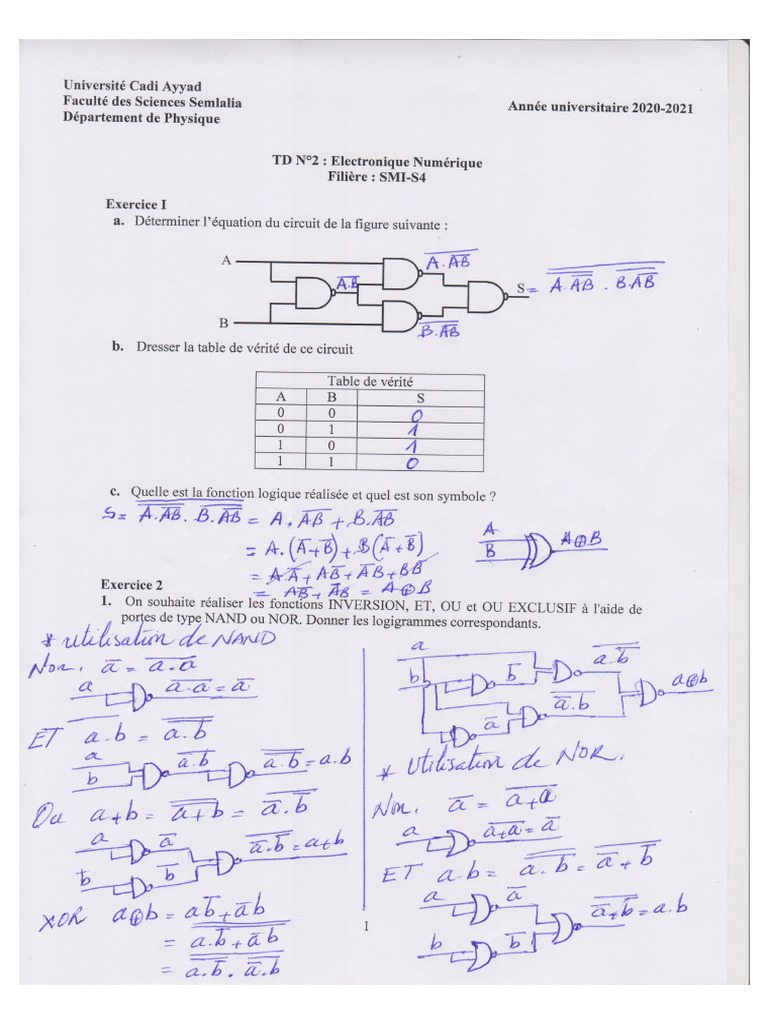 Université Cadi Ayyad
Faculté des Sciences Semlalia
Département de Physique
Année universitaire 2020-2021
TD N°2 : Electronique Numérique
Filière : SMI-S4
Exercice I
a. Déterminer l'équation du circuit de la figure suivante :
A
B
A̅.̅B̅
A̅.̅A̅B̅̅
B̅.̅A̅B̅̅
S = A̅.̅A̅B̅̅ . B̅.̅A̅B̅̅
b. Dresser la table de vérité de ce circuit
Table de vérité
A B S
0 0 0
0 1 1
1 0 1
1 1 0
c. Quelle est la fonction logique réalisée et quel est son symbole ?
S = A̅.̅A̅B̅̅ . B̅.̅A̅B̅̅ = A . A̅B̅ + B . A̅B̅
= A . (A̅ + B̅) + B (A̅ + B̅)
= A.A̅ + AB̅ + A̅B + BB̅
= AB̅ + A̅B = A⊕B
A
B
A⊕B
Exercice 2
1. On souhaite réaliser les fonctions INVERSION, ET, OU et OU EXCLUSIF à l'aide de
portes de type NAND ou NOR. Donner les logigrammes correspondants.
* utilisation de NAND
Non. a̅ = a̅.̅a̅
a
a̅.̅a̅ = a̅
ET a.b = a̅.̅b̅̅
a
b
a̅.̅b̅
a̅.̅b̅̅ = a.b
Ou a+b = a̅+̅b̅̅ = a̅.b̅̅
a
a̅
b
b̅
a̅.b̅̅ = a+b
XOR a⊕b = ab̅ + a̅b
= a.b̅ + a̅.b̅̅
= a.b̅̅ . a̅.b̅̅
a
b
b̅
a̅
a.b̅̅
a̅.b̅
a⊕b
* Utilisation de NOR.
Non. a̅ = a̅+̅a̅
a
a̅+̅a̅ = a̅
ET a.b = a̅.̅b̅̅ = a̅+b̅̅
a
a̅
b
b̅
a̅+b̅̅ = a.b
1